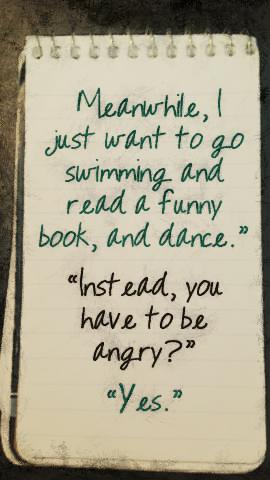 Meanwhile, I
just want to go
swimming and
read a funny
book, and dance.”
“Instead, you
have to be
angry?”
“Yes.”